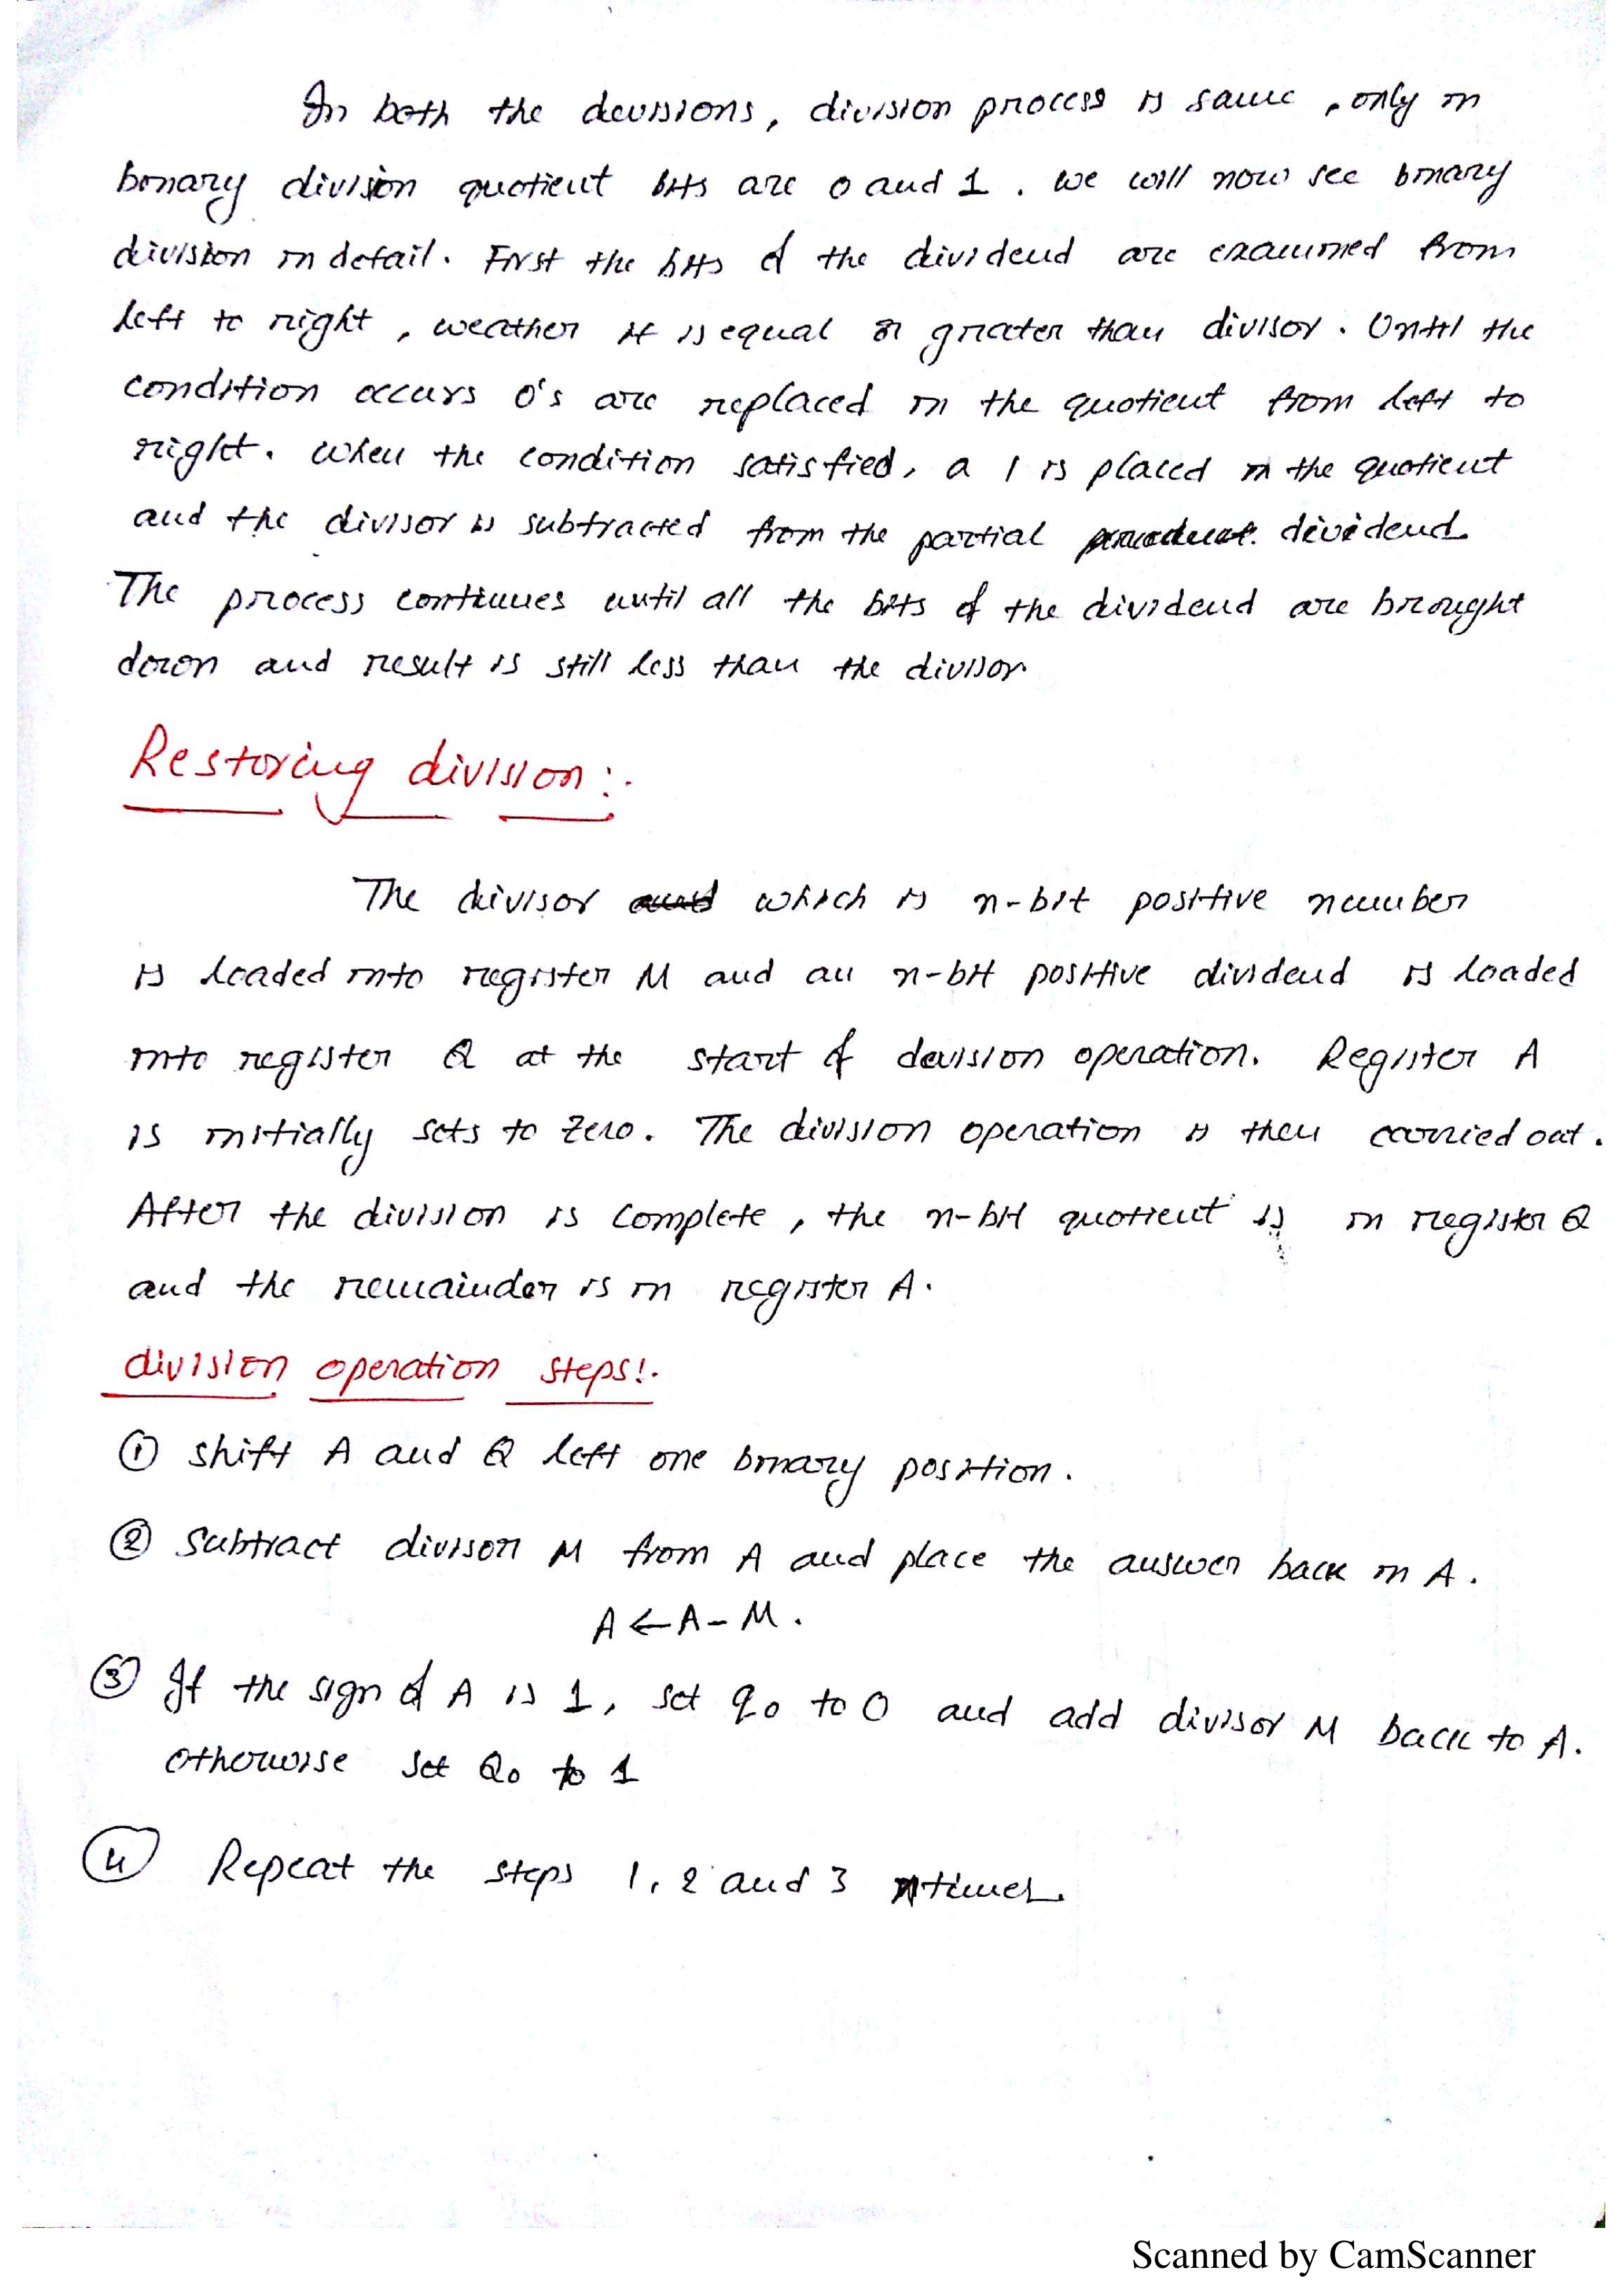 In both the devisions, division process is same, only in
binary division quotient bits are 0 and 1. we will now see binary
division in detail. First the bits of the dividend are examined from
left to right, weather it is equal or greater than divisor. Until the
condition occurs 0's are replaced in the quotient from left to
right. When the condition satisfied, a 1 is placed in the quotient
and the divisor is subtracted from the partial dividend
The process continues until all the bits of the dividend are brought
down and result is still less than the divisor
Restoring division:.
The divisor which is n-bit positive number
is loaded into register M and an n-bit positive dividend is loaded
into register Q at the start of devision operation. Register A
is initially sets to zero. The division operation is then carried out.
After the division is complete, the n-bit quotient is in register Q
and the remainder is in register A.
division operation steps:.
① shift A and Q left one binary position.
② Subtract divisor M from A and place the answer back in A.
A ← A - M.
③ If the sign of A is 1, set q₀ to 0 and add divisor M back to A.
otherwise set Q₀ to 1
④ Repeat the steps 1, 2 and 3 n times.
Scanned by CamScanner